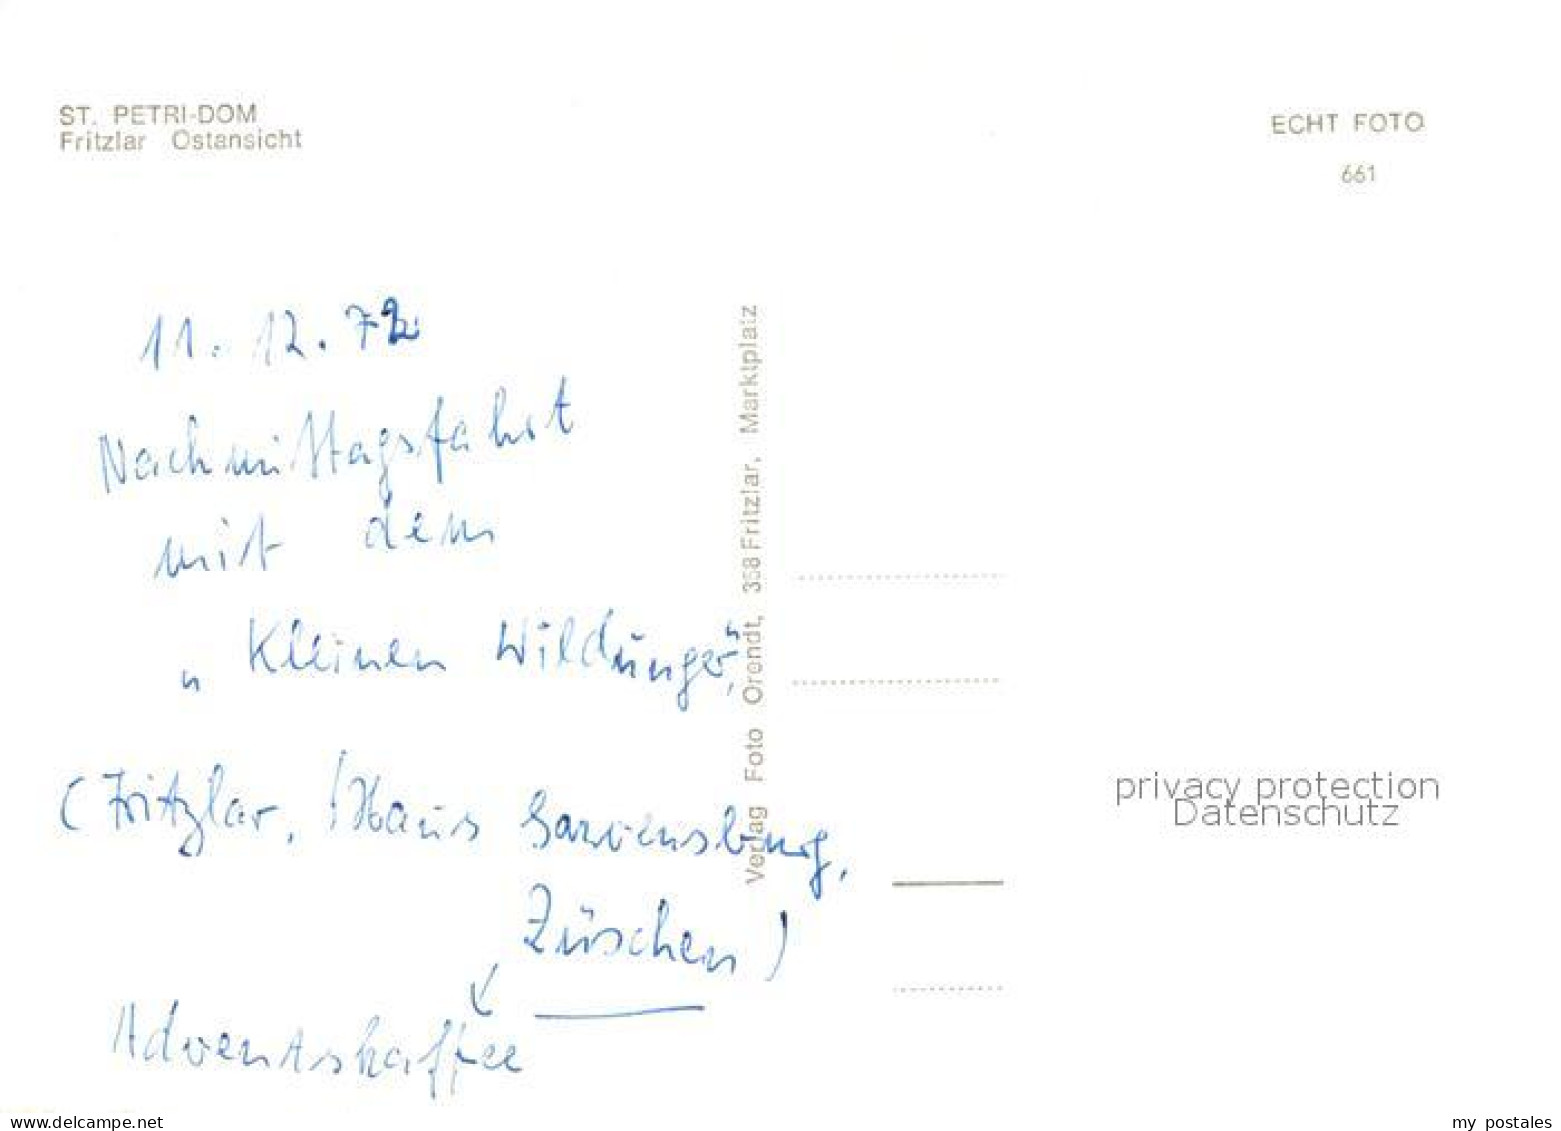 ST. PETRI-DOM
Fritzlar Ostansicht
ECHT FOTO
661
11. 12. 72
Nachmittagsfahrt
mit dem
„Kleinen Wildunger“,
(Fritzlar, Haus Garvensburg,
Züschen)
Adventskaffee
Verlag Foto Orendt, 358 Fritzlar, Marktplatz
privacy protection
Datenschutz
www.delcampe.net
my_postales